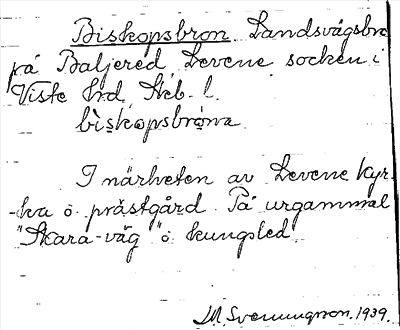 Biskopsbron Landsvägsbro
på Baljered Levene socken i
Viste hrd. Skb. l.
biskopsbróna
I närheten av Levene kyr-
-ka o prästgård. På urgammal
"Skara-väg" o kungsled.
M Svenningsson. 1939.